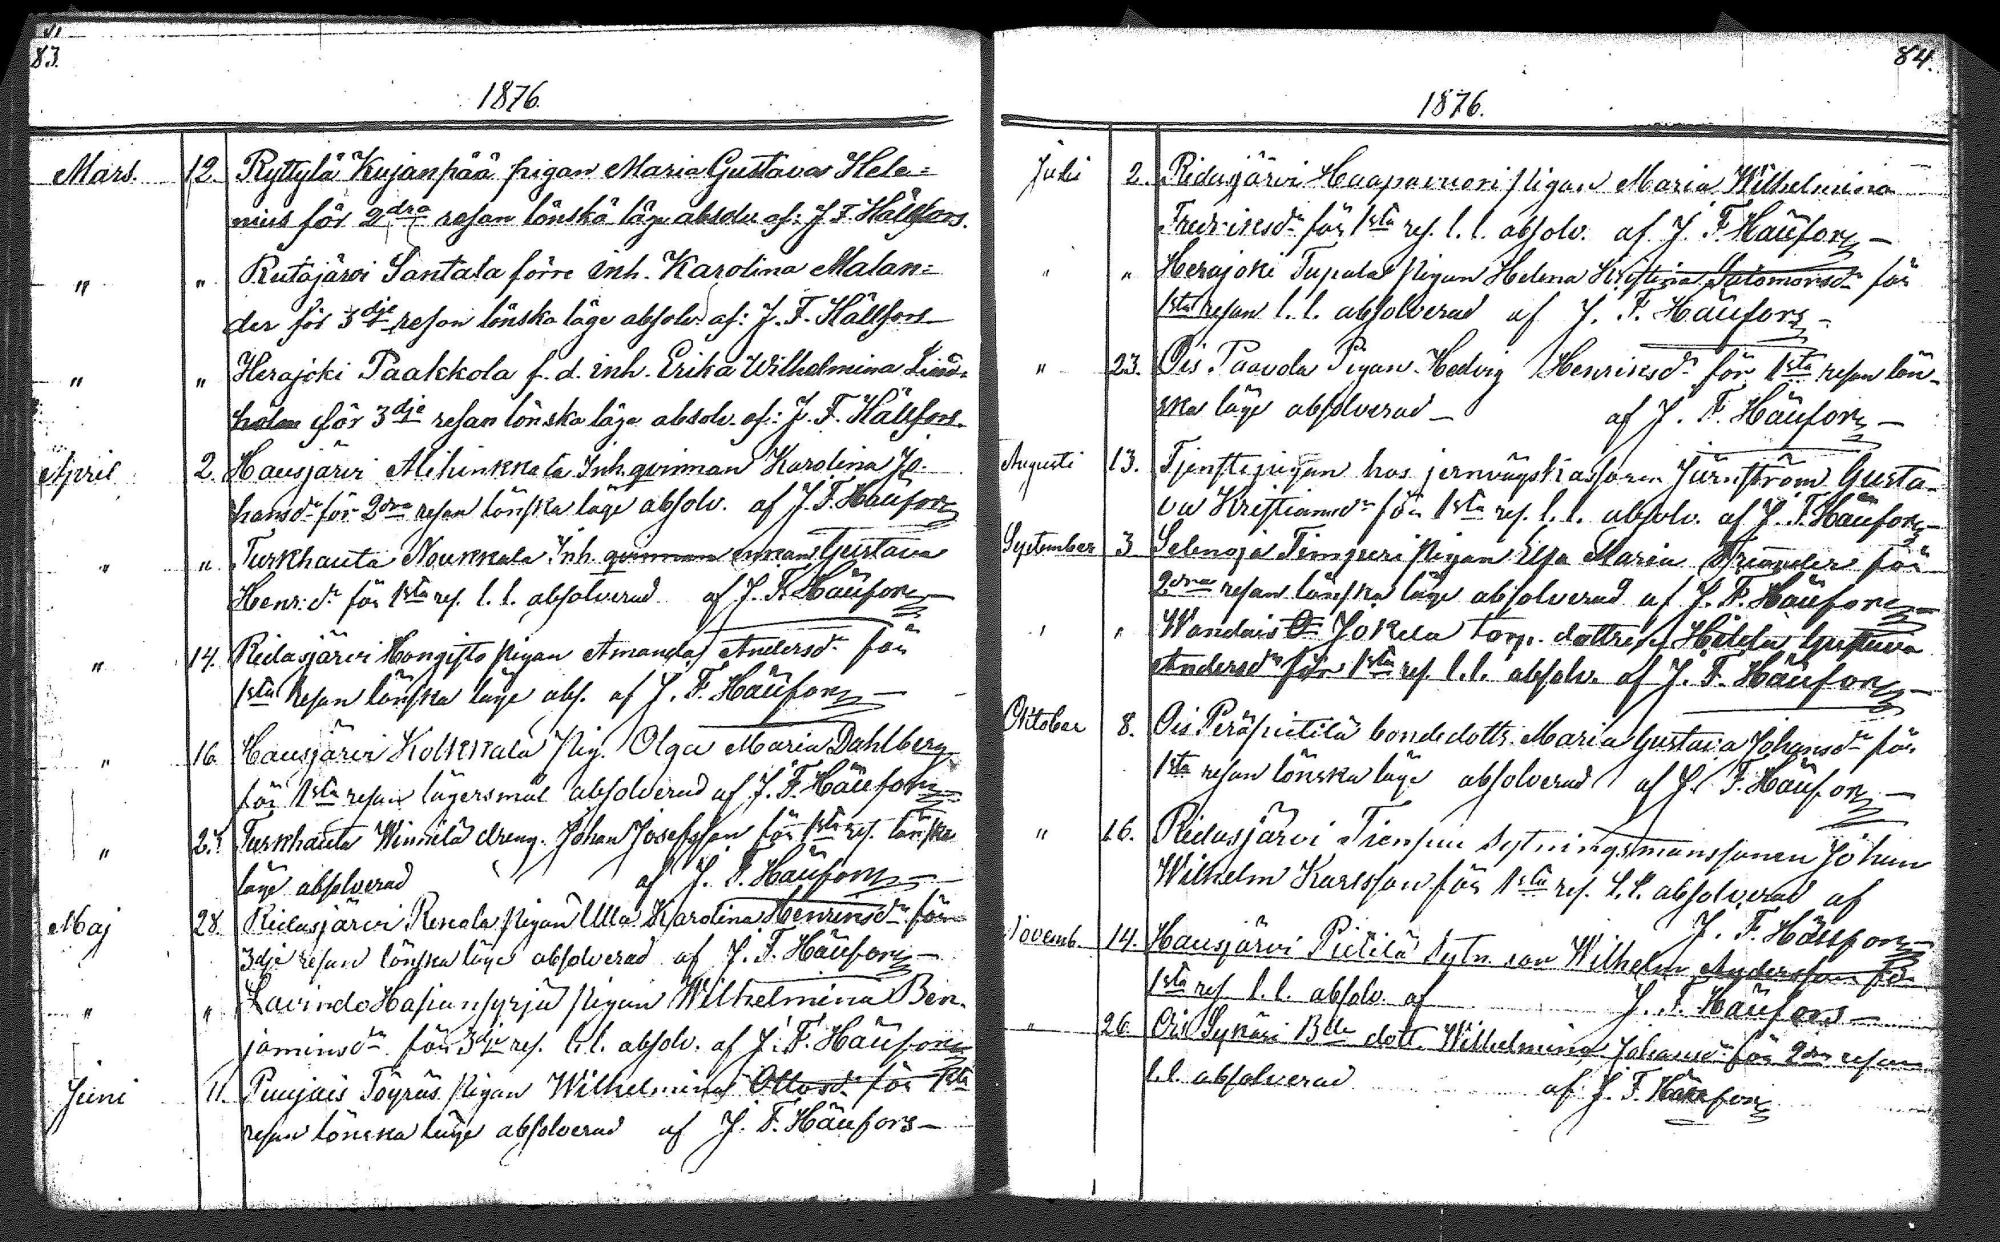 83.
1876.
Mars. 12. Ryttylä Kujanpää pigan Maria Gustava Hele=
nius för 2dra resan lönska läge absolv. af: J. F. Hällfors.
" " Rutajärvi Santala förre inh. Karolina Malan=
der för 3dje resan lönska läge absolv. af: J. F. Hällfors
" " Herajoki Paakkola f. d. inh. Erika Wilhelmina Lind=
holm för 3dje resan lönska läge absolv. af: J. F. Hällfors.
April 2. Hausjärvi Alihinkkala Inh.qvinnan Karolina Jo-
hansdr för 2dra resan lönska läge absolv. af J. F. Hällfors
" " Turkhauta Noukkala Inh. qvinnan enkan Gustava
Henr:dr för 1sta res. l. l. absolverad af J. F. Hällfors
" 14. Ridasjärvi Hongisto pigan Amanda Andersdr för
1sta resan lönska läge abs. af J. F. Hällfors
" 16. Hausjärvi Kolkkala pig. Olga Maria Dahlberg
för 1sta resan lägersmål absolverad af J. F. Hällfors
" Turkhauta Winnilä dreng. Johan Josefsson för 1sta res. lönska
läge absolverad af J. F. Hällfors
Maj 28. Ridasjärvi Renola pigan Ulla Karolina Henriksdr för
3dje resan lönska läge absolverad af J. F. Hällfors
" " Lavindo Hasianpyrjä pigan Wilhelmina Ben-
jaminsdr för 3dje res. l. l. absolv. af J. F. Hällfors
Juni 11. Puujais Töyräs pigan Wilhelmina Ottosdr för 1sta
resan lönska läge absolverad af J. F. Hällfors
84.
1876.
Juli 2. Ridasjärvi Haapavuori pigan Maria Wilhelmina
Fredriksdr för 1sta res. l. l. absolv. af J. F. Hällfors
" " Herajoki Tupala pigan Helena Kristina Salomonsdr för
1sta resan l. l. absolverad af J. F. Hällfors
" 23. Ois Paavola Pigan Hedvig Henriksdr för 1sta resan lön-
ska läge absolverad af J. F. Hällfors
Augusti 13. Tjenstepigan hos jernvägskassören Järnström Gusta-
va Kristiansdr för 1sta res. l. l. absolv. af J. F. Hällfors
September 3 Selenoja Timperi pigan Ulfa Maria för
2dra resan lönska läge absolverad af J. F. Hällfors
" " Wandais Jokela torp. dottren Hilda Gustava
Andersdr för 1sta res. l. l. absolv. af J. F. Hällfors
Oktober 8. Ois Peräpietilä bondedottr. Maria Gustava Johansdr för
1sta resan lönska läge absolverad af J. F. Hällfors
" 16. Ridasjärvi Tiensuu Sytningsmanssonen Johan
Wilhelm Karlsson för 1sta res. l. l. absolverad af
J. F. Hällfors
Novemb. 14. Hausjärvi Pietilä Sytn. son Wilhelm Andersson för
1sta res. l. l. absolv. af J. F. Hällfors
" 26 Ois Sykäri Bde dott. Wilhelmina Johansdr för 2dra resan
l. l. absolverad af J. F. Hällfors